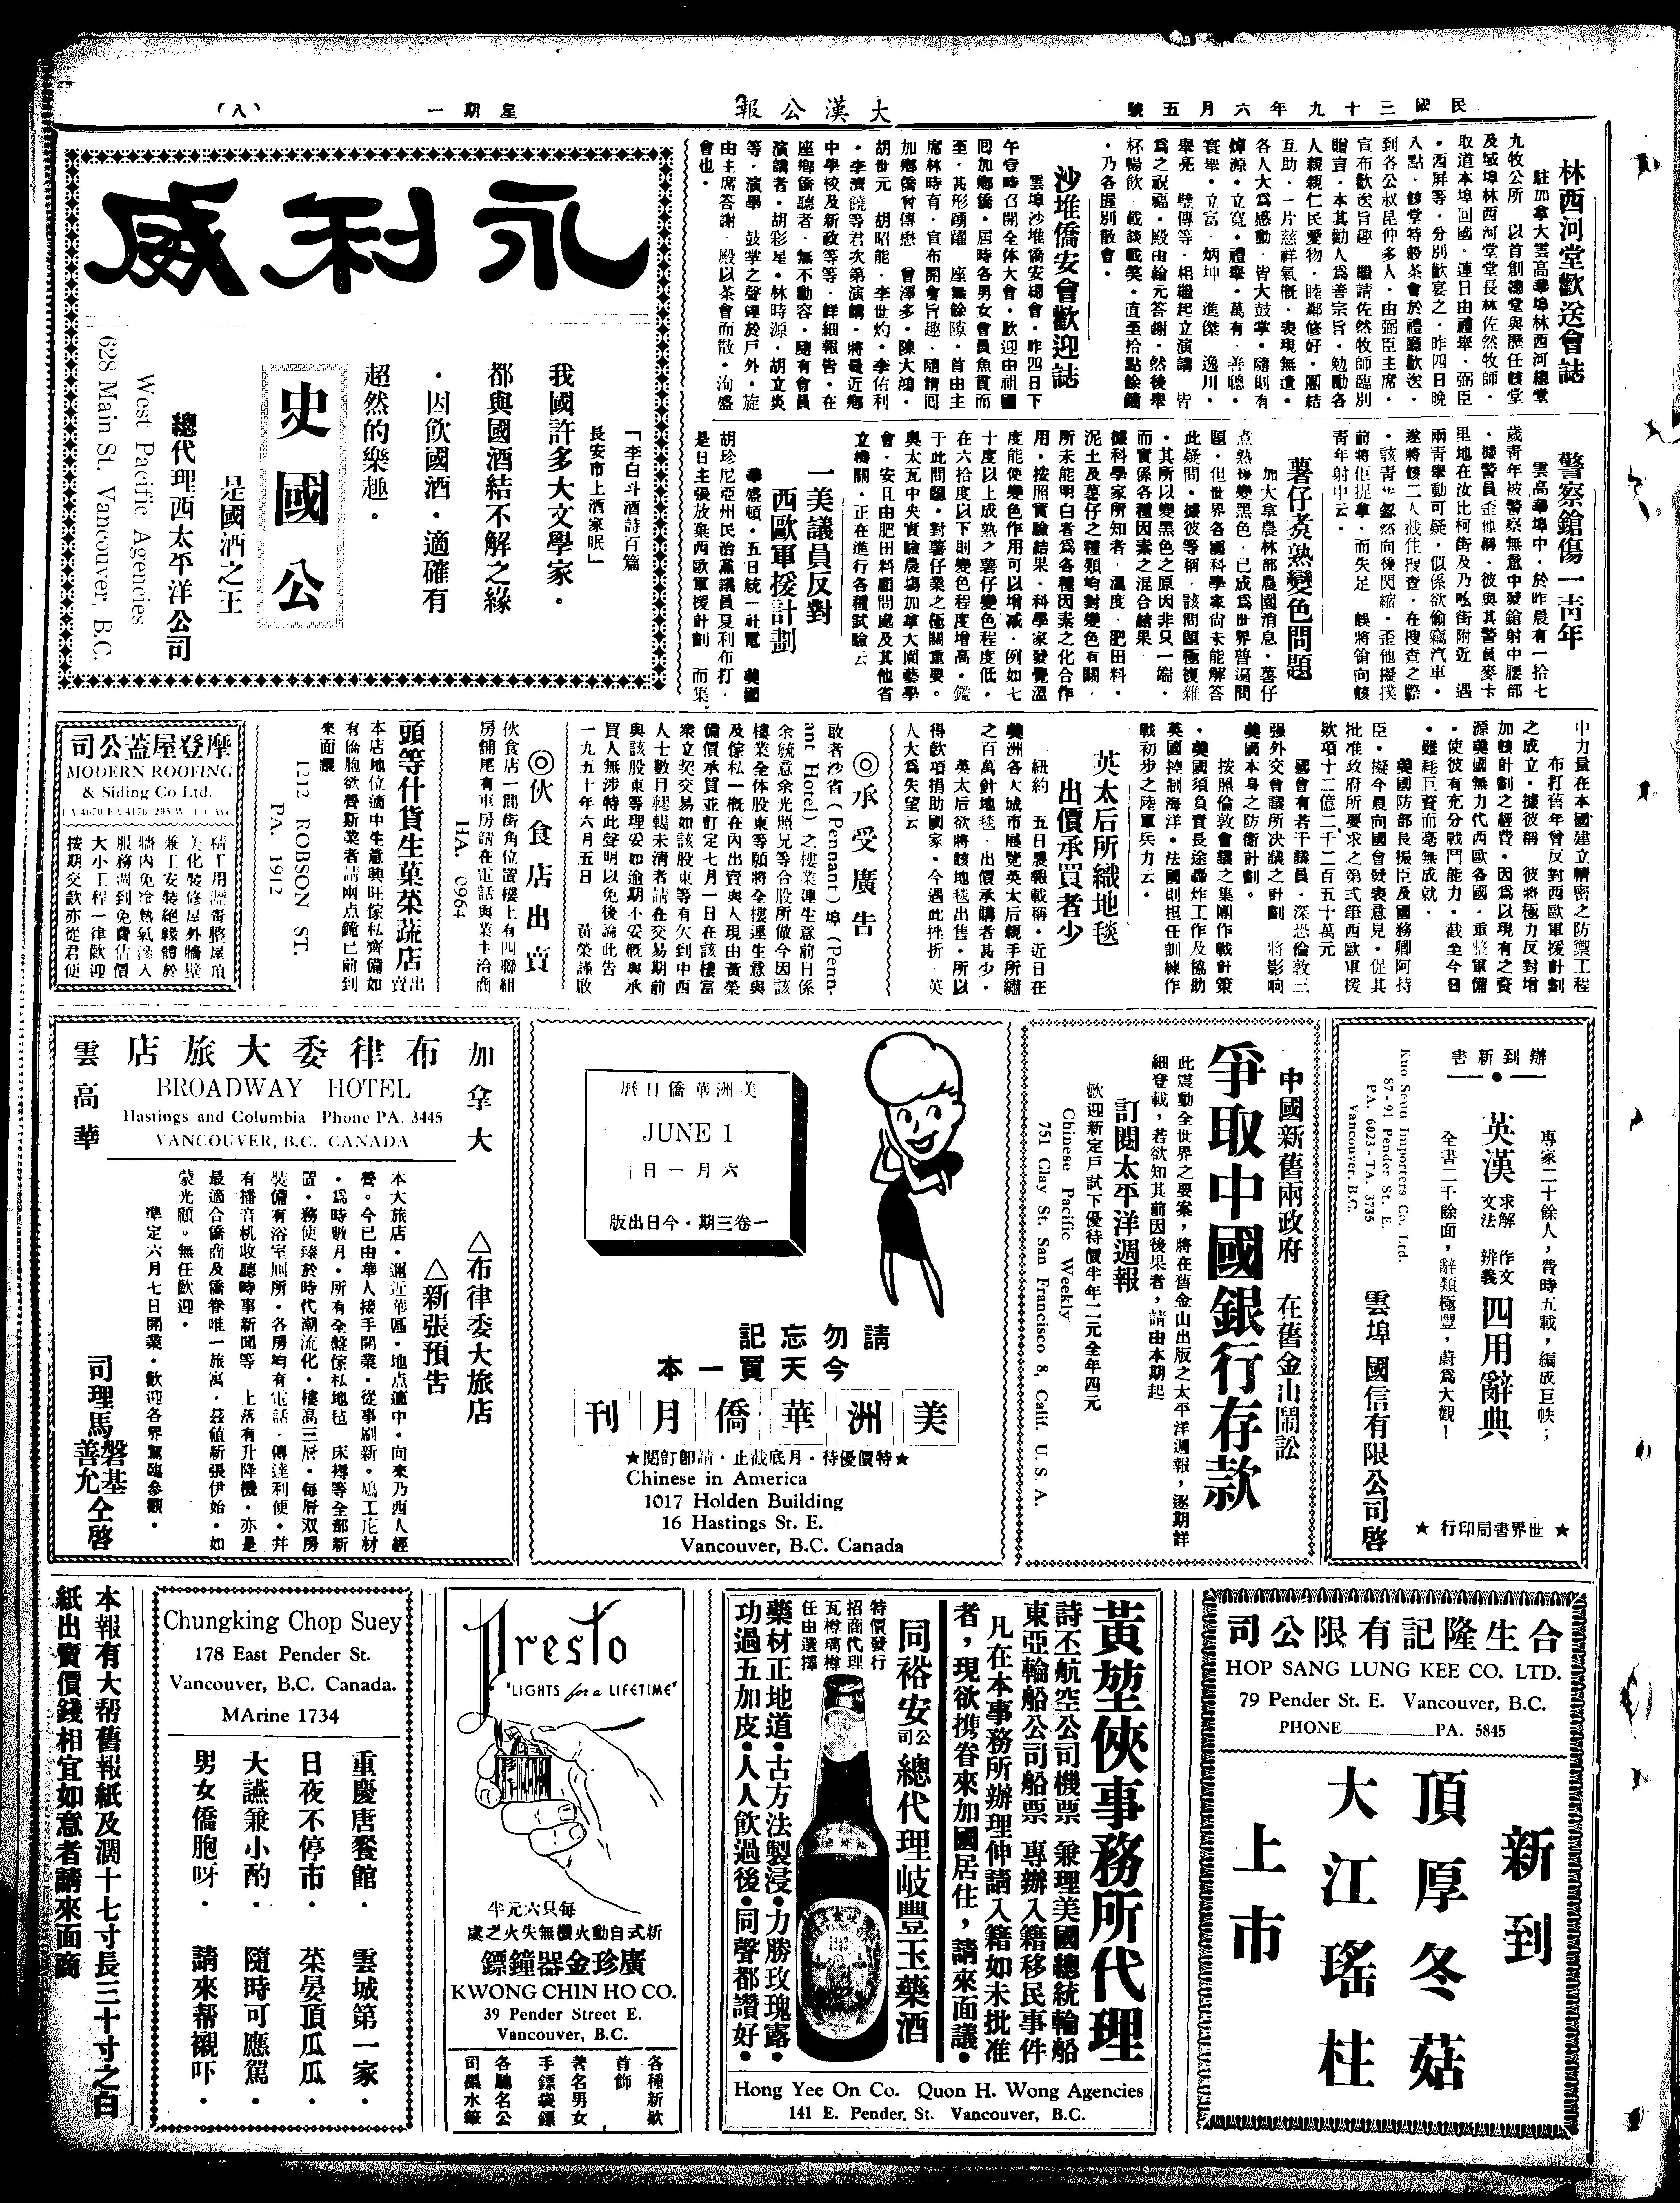 民國三十九年六月五號
大漢公報
星期一
（八）
林西河堂歡送會誌
駐加拿大雲高華埠林西河總堂
九牧公所　以首創總堂與歷任該堂
及域埠林西河堂堂長林佐然牧師．
取道本埠回國．連日由禮舉．弼臣
．西屏等．分別歡宴之．昨四日晚
八點．該堂特設茶會於禮廳歡送．
到各公叔昆仲多人．由弼臣主席．
宣布歡送旨趣　繼請佐然牧師臨別
贈言．本其勸人為善宗旨．勉勵各
人親親仁民愛物．睦鄰修好．團結
互助．一片慈祥氣慨．表現無遺．
各人大為感動．皆大鼓掌．隨則有
焯源．立寬．禮舉．萬有．善聰．
寰舉．立富．炳坤．進傑　逸川．
舉亮　璧傳等．相繼起立演講　皆
為之祝福．殿由翰元答謝．然後舉
杯暢飲．載談載笑．直至拾點餘鐘
．乃各握別散會．
沙堆僑安會歡迎誌
雲埠沙堆僑安總會．昨四日下
午壹時召開全体大會．歡迎由祖國
回加鄉僑．屆時各男女會員魚貫而
至．其形踴躍　座無餘隙．首由主
席林時育．宣布開會旨趣．隨請回
加鄉僑曾傳懋　曾澤多．陳大鴻．
胡世元　胡昭能．李世灼．李佑利
．李濟饒等君次第演講．將最近鄉
中學校及新政等等．詳細報告．在
座鄉僑聽者．無不動容．隨有會員
演講者．胡彩星．林時源．胡立炎
等．演畢　鼓掌之聲確於戶外．旋
由主席答謝．殿以茶會而散．洵盛
會也．
永利威
「李白斗酒詩百篇
長安市上酒家眠」
我國許多大文學家．
都與國酒結不解之緣
．因飲國酒．適確有
超然的樂趣。
史國公
是國酒之王
總代理西太平洋公司
West Pacific Agencies
628 Main St. Vancouver, B.C.
警察鎗傷一青年
雲高華埠中．於昨晨有一拾七
歲青年被警察無意中發鎗射中腰部
．據警員歪他稱．彼與其警員麥卡
里地在汝比柯街及乃吆街附近　遇
兩青舉動可疑．似係欲偷竊汽車．
遂將該二人截住搜查．在搜查之際
．該青年忽然向後閃縮．歪他擬撲
前將佢提拿．而失足　誤將鎗向該
青年射中云．
薯仔煮熟變色問題
加大拿農林部農園消息．薯仔
煮熟後變黑色．已成為世界普遍問
題．但世界各國科學家尚未能解答
此疑問．據彼等稱．該問題極複雜
．其所以變黑色之原因非只一端．
而實係各種因素之混合結果．
據科學家所知者．溫度．肥田料．
泥土及薯仔之種類均對變色有關．
所未能明白者為各種因素之化合作
用．按照實驗結果．科學家發覺溫
度能使變色作用可以增减．例如七
十度以上成熟之薯仔變色程度低．
在六拾度以下則變色程度增高．鑑
于此問題．對薯仔業之極關重要。
與太瓦中央實驗農塲加拿大園藝學
會．安且由肥田料顧問處及其他省
立機關．正在進行各種試驗云
一美議員反對
西歐軍援計劃
華盛頓．五日統一社電　美國
胡珍尼亞州民治黨議員夏利布打．
是日主張放棄西歐軍援計劃　而集
中力量在本國建立精密之防禦工程
布打舊年曾反對西歐軍援計劃
之成立．據彼稱　彼將極力反對增
加該計劃之經費．因為以現有之資
源美國無力代西歐各國．重整軍備
．使彼有充分戰鬥能力．截至今日
．雖耗巨資而毫無成就．
美國防部長振臣及國務卿阿持
臣．擬今晨向國會發表意見．促其
批准政府所要求之第弍筆西歐軍援
欵項十二億二千二百五十萬元
國會有若干議員．深恐倫敦三
强外交會議所决議之計劃　將影响
美國本身之防衞計劃．
按照倫敦會議之集團作戰計策
．美國須負責長途轟炸工作及協助
英國控制海洋．法國則担任訓練作
戰初步之陸軍兵力云．
英太后所織地毯
出價承買者少
紐約　五日晨報載稱．近日在
美洲各大城市展覽英太后親手所繡
之百萬針地毯．出價承購者甚少．
英太后欲將該地毯出售．所以
得欵項捐助國家．今遇此挫折．英
人大為失望云
◎承受廣告
敢者沙省（Pennant）埠（Penn-
ant Hotel）之樓業連生意前日係
余毓意余光照兄等合股所做今因該
樓業全体股東等願將全樓連生意與
及傢私一概在內出賣與人現由黃榮
備價承買並訂定七月一日在該樓當
衆立契交易如該股東等有欠到中西
人士數目轇轕未清者請在交易期前
與該股東等理妥如逾期不妥慨與承
買人無涉特此聲明以免後論此告
一九五十年六月五日　黃榮謹啟
◎伙食店出賣
伙食店一間街角位置樓上有四聯組
房舖尾有車房請在電話與業主洽商
HA. 0964
頭等什貨生菓菜蔬店出賣
本店地位適中生意興旺傢私齊備如
有僑胞欲營斯業者請兩点鐘已前到
來面議
1212 ROBSON ST.
PA. 1912
摩登屋蓋公司
MODERN ROOFING
& Siding Co Ltd.
精工用瀝膏整屋頂
美化裝修屋外牆壁
兼工安裝絕緣體於
牆內免冷熱氣滲入
服務周到免費估價
大小工程一律歡迎
按期交欵亦從君便
辦到新書
專家二十餘人，費時五載，編成巨帙；
英漢求解作文文法辨義四用辭典
全書二千餘面，辭類極豐，蔚為大觀！
★世界書局印行★
雲埠國信有限公司啓
Kuo Seun Importers Co. Ltd.
87 - 91 Pender St. E.
PA. 6023 - TA. 3735
Vancouver, B.C.
中國新舊兩政府　在舊金山鬧訟
爭取中國銀行存款
此震動全世界之要案，將在舊金山出版之太平洋週報，逐期詳
細登載，若欲知其前因後果者，請由本期起
訂閱太平洋週報
歡迎新定戶試下優待價半年二元全年四元
Chinese Pacific Weekly
751 Clay St. San Francisco 8, Calif. U. S. A.
美洲華僑日曆
JUNE 1
六月一日
一卷三期・今日出版
請勿忘記
今天買一本
美洲華僑月刊
★特價優待・月底截止・請即訂閱★
Chinese in America
1017 Holden Building
16 Hastings St. E.
Vancouver, B.C. Canada
加拿大
布律委大旅店
雲高華
BROADWAY HOTEL
Hastings and Columbia Phone PA. 3445
VANCOUVER, B.C. CANADA
△布律委大旅店
△新張預告
本大旅店．邇近華區．地点適中．向來乃西人經
營。今已由華人接手開業．從事刷新。鳩工庀材
．為時數月．所有全盤傢私地毡　床褥等全部新
置．務使臻於時代潮流化．樓高三層．每層双房
裝備有浴室厠所．各房均有電話．傳達利便．并
有播音机收聽時事新聞等　上落有升降機．亦是
最適合僑商及僑眷唯一旅寓．茲値新張伊始．如
蒙光顧。無任歡迎．
準定六月七日開業．歡迎各界駕臨參觀．
司理馬磐基善允仝啓
合生隆記有限公司
HOP SANG LUNG KEE CO. LTD.
79 Pender St. E. Vancouver, B.C.
PHONE PA. 5845
新到
頂厚冬菇
大江瑤柱
上市
黃堃俠事務所代理
詩丕航空公司機票　兼理美國總統輪船
東亞輪船公司船票　專辦入籍移民事件
凡在本事務所辦理伸請入籍如未批准
者，現欲携眷來加國居住，請來面議．
同裕安公司總代理岐豐玉藥酒
特價發行
招商代理
瓦樽璃樽
任由選擇
藥材正地道．古方法製浸．力勝玫瑰露．
功過五加皮．人人飲過後．同聲都讚好．
Hong Yee On Co. Quon H. Wong Agencies
141 E. Pender. St. Vancouver, B.C.
Presto
"LIGHTS for a LIFETIME"
每只六元半
新式自動火機無失火之虞
廣珍金器鐘鏢
KWONG CHIN HO CO.
39 Pender Street E.
Vancouver, B.C.
各種新欵
首飾
著名男女
手鏢袋鏢
各馳名公
司墨水筆
Chungking Chop Suey
178 East Pender St.
Vancouver, B.C. Canada.
MArine 1734
重慶唐餐館．雲城第一家．
日夜不停市．菜晏頂瓜瓜．
大讌兼小酌．隨時可應駕．
男女僑胞呀．請來帮襯吓．
本報有大帮舊報紙及濶十七寸長三十寸之白
紙出賣價錢相宜如意者請來面商